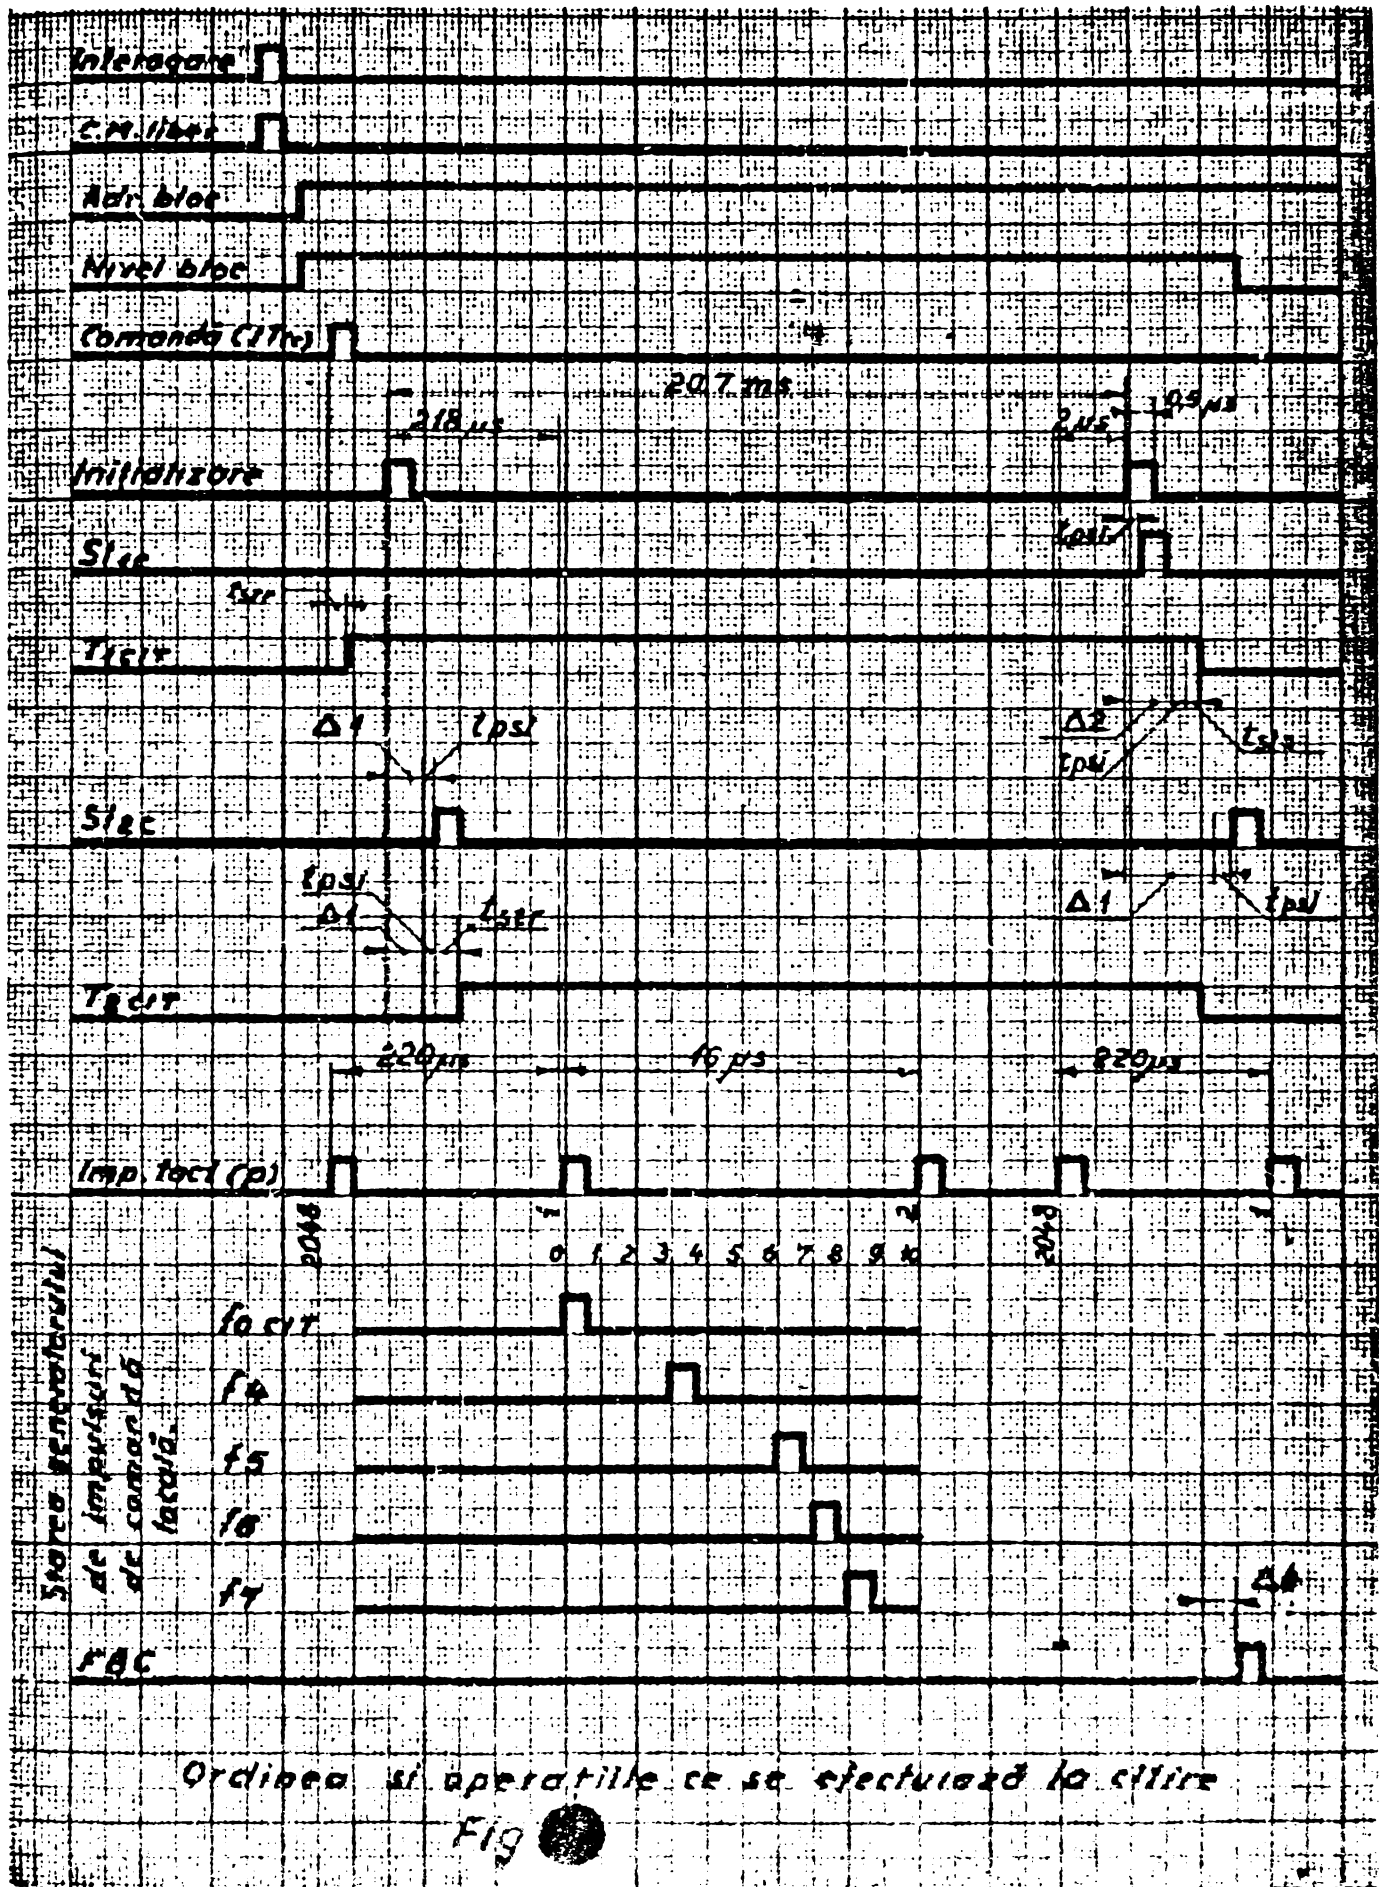 Interogare
C.M. liber
Adr. bloc
Nivel bloc
Comandă (CITIR)
20,7 ms
218 µs
2 µs
0,5 µs
Initializare
tpsi
SI1c
tstr
T1CIT
Δ1
tpsi
Δ2
tpsi
SI2c
tpsi
Δ1
tstr
Δ1
tpsi
T2CIT
220 µs
16 µs
820 µs
Imp. tact (p)
2048
1
2
2048
1
0 1 2 3 4 5 6 7 8 9 10
Starea generatorului
de impulsuri
de comandă
locală.
f0 CIT
f4
f5
f6
f7
Δ4
FBC
Ordinea si operatiile ce se efectuiază la citire
Fig